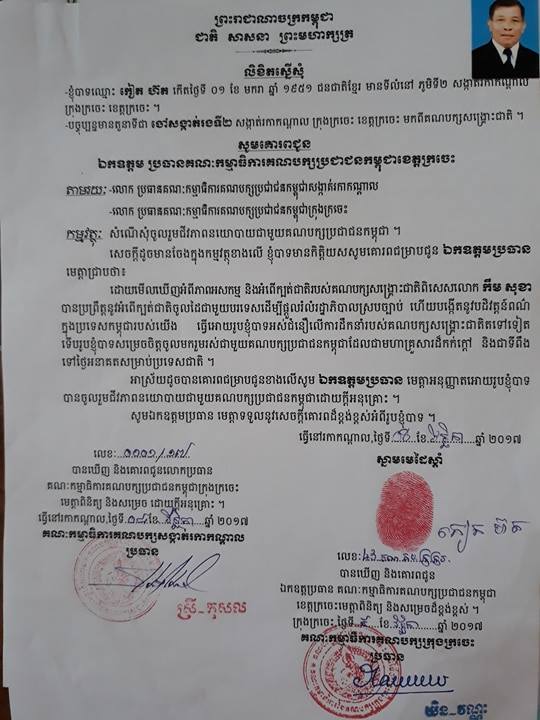 ព្រះរាជាណាចក្រកម្ពុជា
ជាតិ សាសនា ព្រះមហាក្សត្រ
លិខិតស្នើសុំ
-ខ្ញុំបាទឈ្មោះ កឿត ហ៊ត កើតថ្ងៃទី ០១ ខែ មករា ឆ្នាំ ១៩៥១ ជនជាតិខ្មែរ មានទីលំនៅ ភូមិទី២ សង្កាត់រកាកណ្តាល
ក្រុងក្រចេះ ខេត្តក្រចេះ ។
-បច្ចុប្បន្នមានតួនាទីជា ចៅសង្កាត់រងទី២ សង្កាត់រកាកណ្តាល ក្រុងក្រចេះ ខេត្តក្រចេះ មកពីគណបក្សសង្គ្រោះជាតិ ។
សូមគោរពជូន
ឯកឧត្តម ប្រធានគណៈកម្មាធិការគណបក្សប្រជាជនកម្ពុជាខេត្តក្រចេះ
តាមរយៈ -លោក ប្រធានគណៈកម្មាធិការគណបក្សប្រជាជនកម្ពុជាសង្កាត់រកាកណ្តាល
-លោក ប្រធានគណៈកម្មាធិការគណបក្សប្រជាជនកម្ពុជាក្រុងក្រចេះ
កម្មវត្ថុៈ សំណើសុំចូលរួមជីវភាពនយោបាយជាមួយគណបក្សប្រជាជនកម្ពុជា ។
សេចក្តីដូចមានចែងក្នុងកម្មវត្ថុខាងលើ ខ្ញុំបាទមានកិត្តិយសសូមគោរពជម្រាបជូន ឯកឧត្តមប្រធាន
មេត្តាជ្រាបថា៖
ដោយមើលឃើញអំពីភាពអសកម្ម និងអំពើក្បត់ជាតិរបស់គណបក្សសង្គ្រោះជាតិពិសេសលោក កឹម សុខា
បានប្រព្រឹត្តនូវអំពើក្បត់ជាតិចូលដៃជាមួយបរទេសដើម្បីផ្តួលរំលំរដ្ឋាភិបាលស្របច្បាប់ ហើយបង្កើតនូវបដិវត្តន៍ពណ៌
ក្នុងប្រទេសកម្ពុជារបស់យើង ធ្វើអោយរូបខ្ញុំបាទអស់ជំនឿលើការដឹកនាំរបស់គណបក្សសង្គ្រោះជាតិតទៅទៀត
ទើបរូបខ្ញុំបាទសម្រេចចិត្តចូលមករួមរស់ជាមួយគណបក្សប្រជាជនកម្ពុជាដែលជាមហាគ្រួសារដ៏កក់ក្តៅ និងជាទីពឹង
ទៅថ្ងៃអនាគតសម្រាប់ប្រទេសជាតិ ។
អាស្រ័យដូចបានគោរពជម្រាបជូនខាងលើសូម ឯកឧត្តមប្រធាន មេត្តាអនុញ្ញាតអោយរូបខ្ញុំបាទ
បានចូលរួមជីវភាពនយោបាយជាមួយគណបក្សប្រជាជនកម្ពុជាដោយក្តីអនុគ្រោះ ។
សូមឯកឧត្តមប្រធាន មេត្តាទទួលនូវសេចក្តីគោរពដ៏ខ្ពង់ខ្ពស់អំពីរូបខ្ញុំបាទ ។
ធ្វើនៅរកាកណ្តាល,ថ្ងៃទី ខែ វិច្ឆិកា ឆ្នាំ ២០១៧
ស្នាមមេដៃស្តាំ
កឿត ហ៊ត
លេខៈ
បានឃើញ និងគោរពជូនលោកប្រធាន
គណៈកម្មាធិការគណបក្សប្រជាជនកម្ពុជាក្រុងក្រចេះ
មេត្តាពិនិត្យ និងសម្រេច ដោយក្តីអនុគ្រោះ ។
ធ្វើនៅរកាកណ្តាល,ថ្ងៃទី ខែ វិច្ឆិកា ឆ្នាំ ២០១៧
គណៈកម្មាធិការគណបក្សសង្កាត់រកាកណ្តាល
ប្រធាន
ស្រី-កុសល
លេខៈ
បានឃើញ និងគោរពជូន
ឯកឧត្តមប្រធាន គណៈកម្មាធិការគណបក្សប្រជាជនកម្ពុជា
ខេត្តក្រចេះមេត្តាពិនិត្យ និងសម្រេចដ៏ខ្ពង់ខ្ពស់ ។
ក្រុងក្រចេះ ថ្ងៃទី ខែ វិច្ឆិកា ឆ្នាំ ២០១៧
គណៈកម្មាធិការគណបក្សក្រុងក្រចេះ
ប្រធាន
ឃិន-វណ្ណៈ